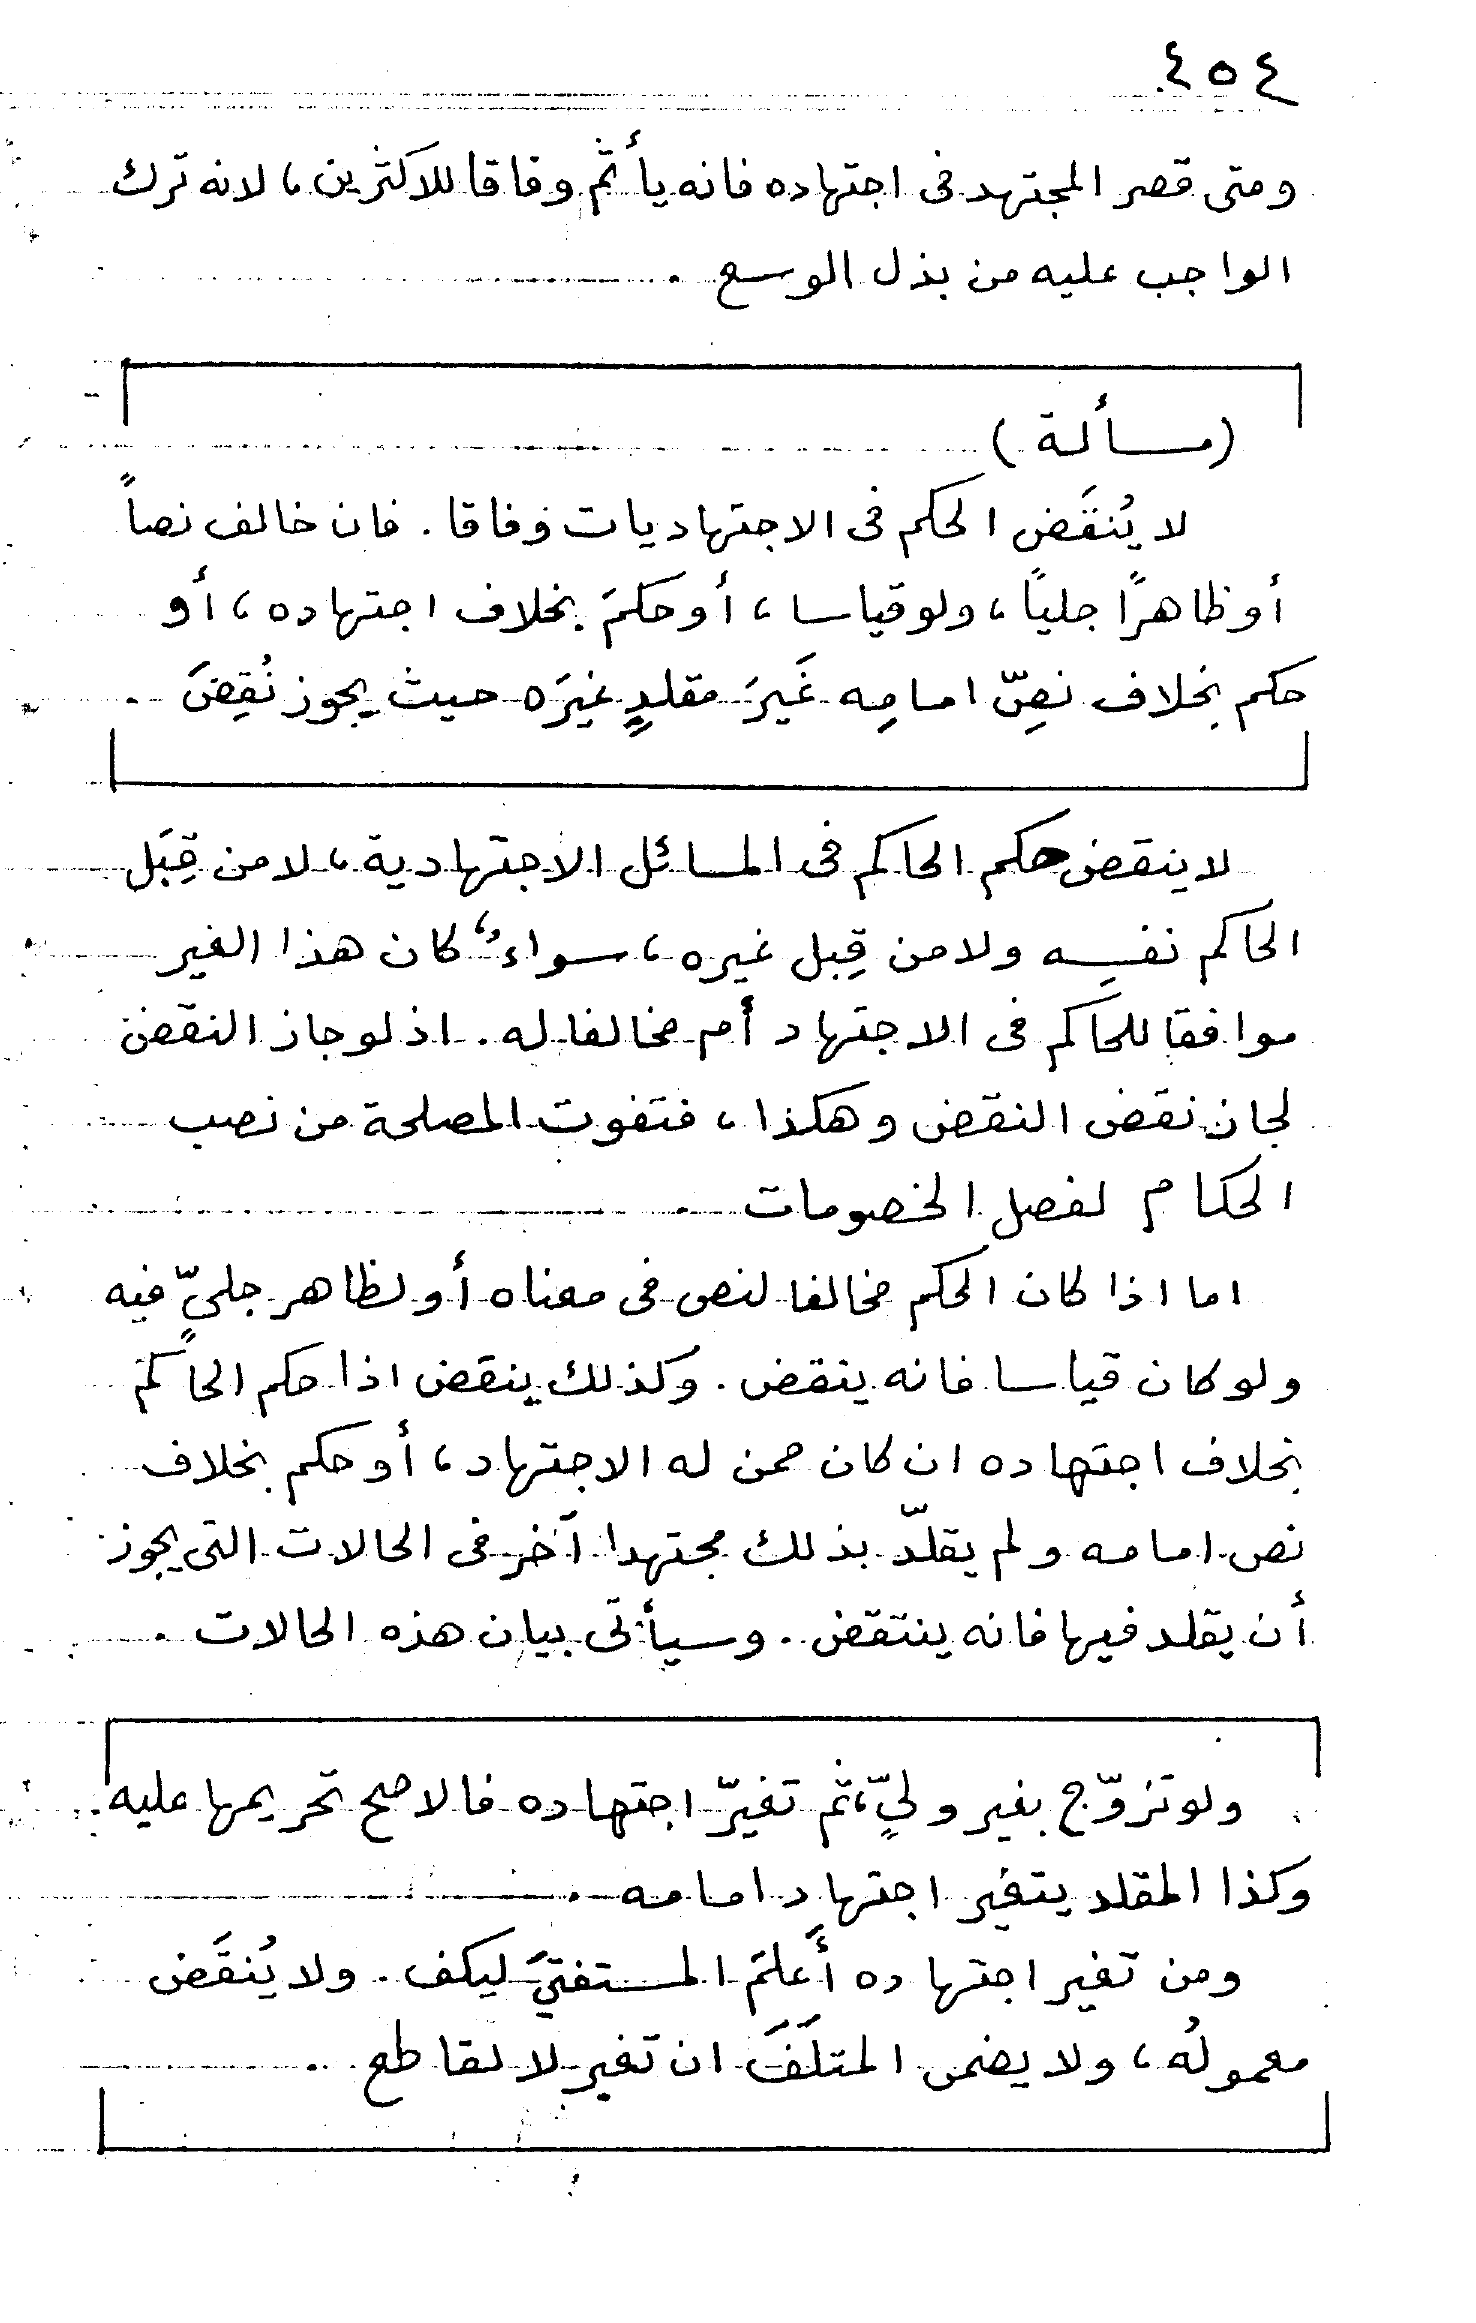 ٤٥٤
ومتى قصر المجتهد فى اجتهاده فانه يأثم وفاقا للاكثرين، لانه ترك
الواجب عليه من بذل الوسع .
(مسألة)
لا يُنقَض الحكم فى الاجتهاديات وفاقا . فان خالف نصاً
أو ظاهرًا جلياً، ولو قياسا، أو حكمَ بخلاف اجتهاده، أو
حكم بخلاف نصِّ امامِه غَيرَ مقلدٍ غيرَه حيث يجوز نُقِضَ .
لا ينقض حكم الحاكم فى المسائل الاجتهادية، لا من قِبَل
الحاكم نفسِه ولا من قِبل غيره، سواءٌ كان هذا الغير
موافقا للحاكم فى الاجتهاد أم مخالفا له . اذ لو جاز النقض
لجاز نقض النقض وهكذا، فتفوت المصلحة من نصب
الحكام لفصل الخصومات .
اما اذا كان الحكم مخالفا لنص فى معناه أو لظاهر جليٍّ فيه
ولو كان قياسا فانه ينقض . وكذلك ينقض اذا حكم الحاكم
بخلاف اجتهاده ان كان ممن له الاجتهاد، أو حكم بخلاف
نص امامه ولم يقلّد بذلك مجتهدا آخر فى الحالات التى يجوز
أن يقلد فيها فانه ينتقض . وسيأتى بيان هذه الحالات .
ولو تزوّج بغير وليٍّ، ثم تغيّر اجتهاده فالاصح تحريمها عليه
وكذا المقلد يتغير اجتهاد امامه .
ومن تغير اجتهاده أَعلمَ المستفتيَ ليكف . ولا يُنقَض
معمولُه، ولا يضمن المتلَفَ ان تغير لا لقاطع .